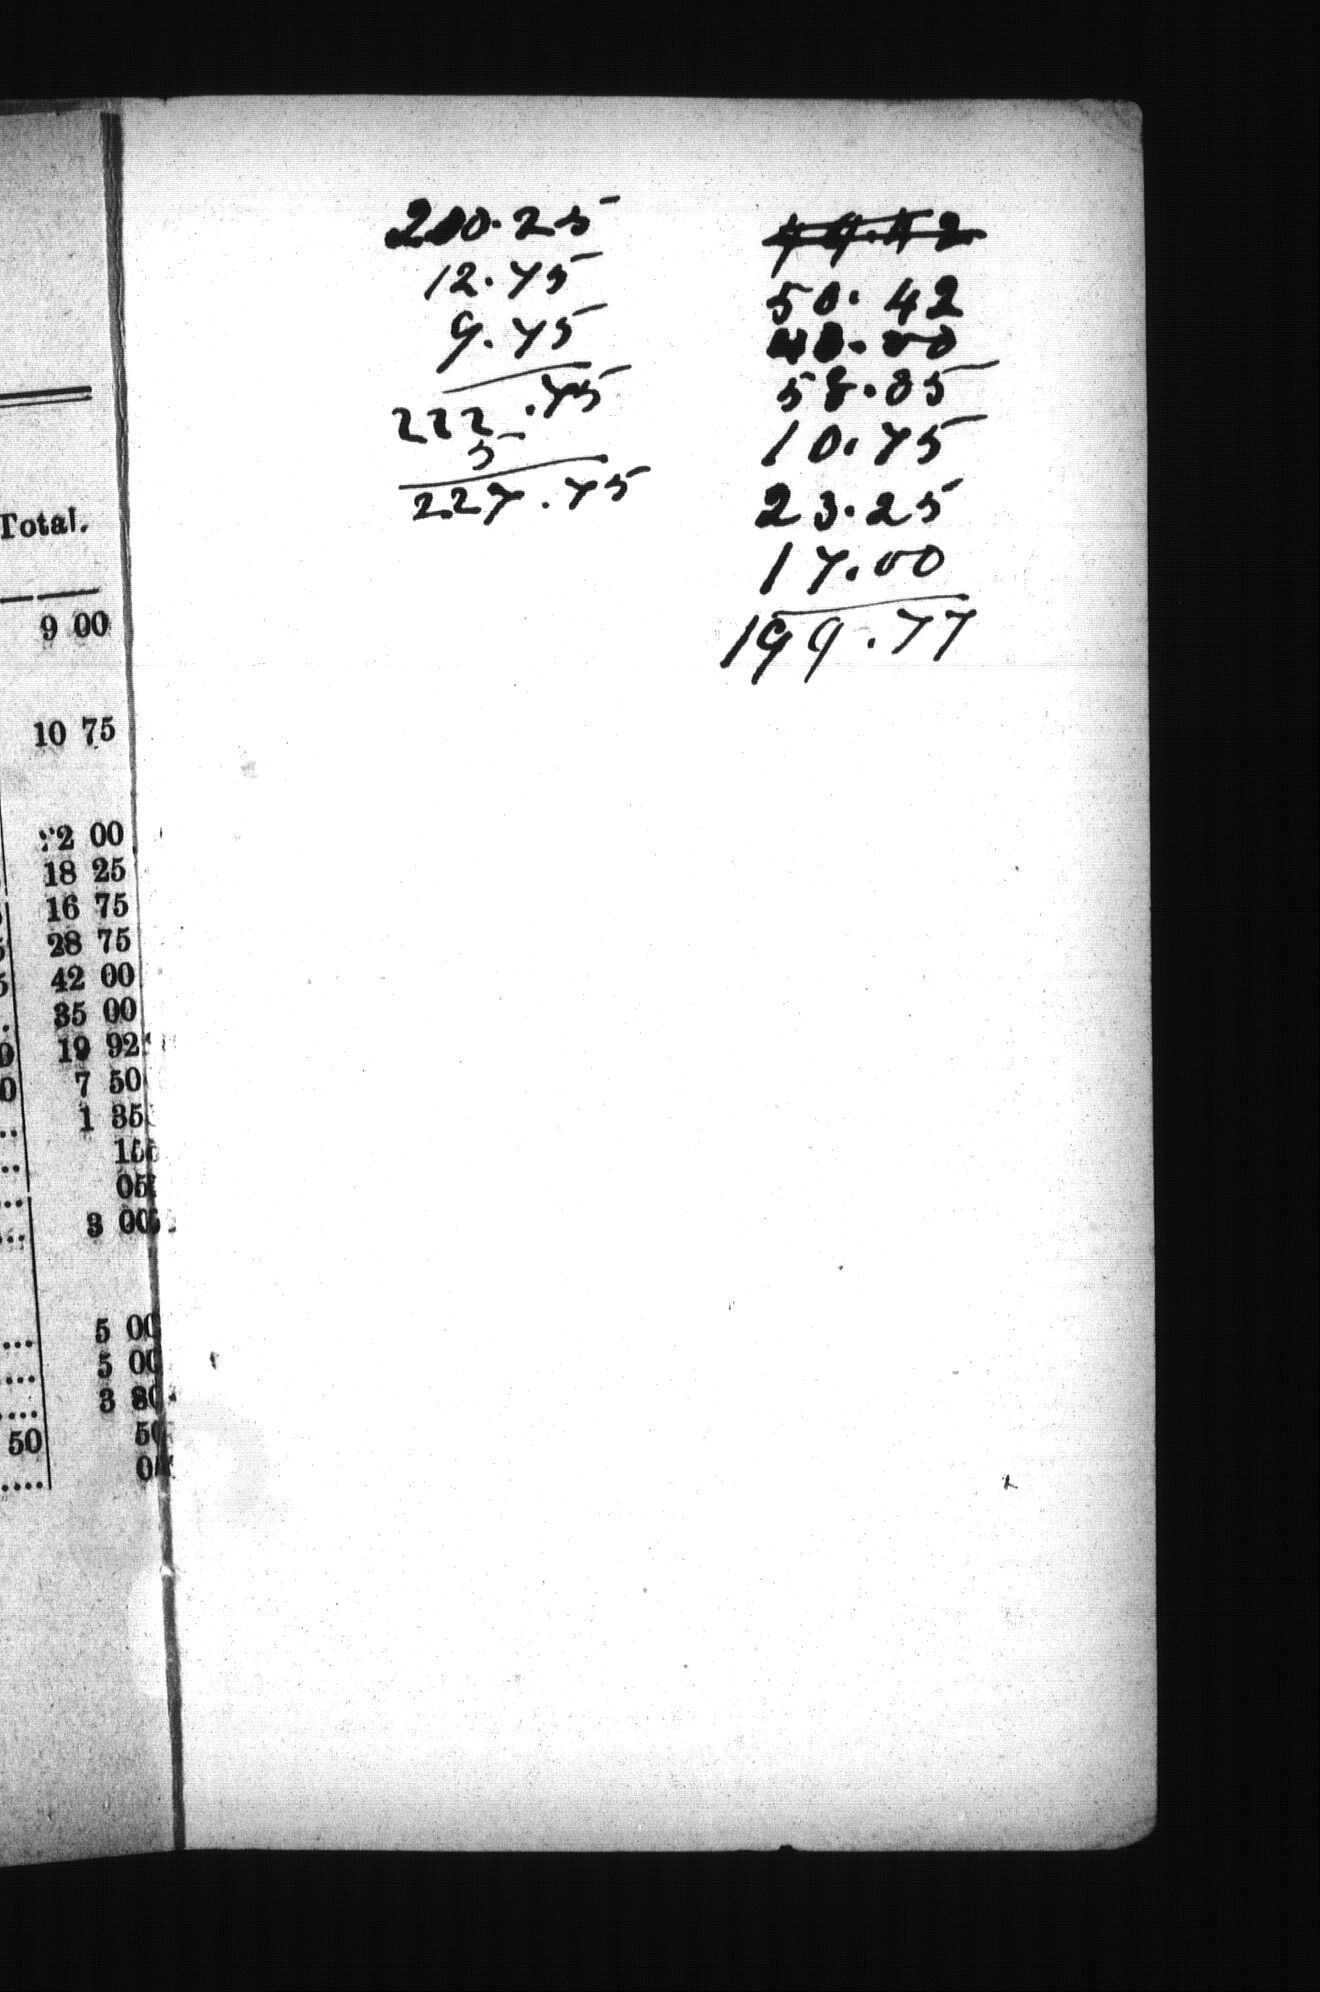 Total.
9 00
10 75
2 00
18 25
16 75
28 75
42 00
35 00
19 92
7 50
1 35
05
3 00
5 00
5 00
3 80
50 50
200.25
12.75
9.75
222.75
5
227.75
50.42
40.00
58.35
10.75
23.25
17.00
199.77